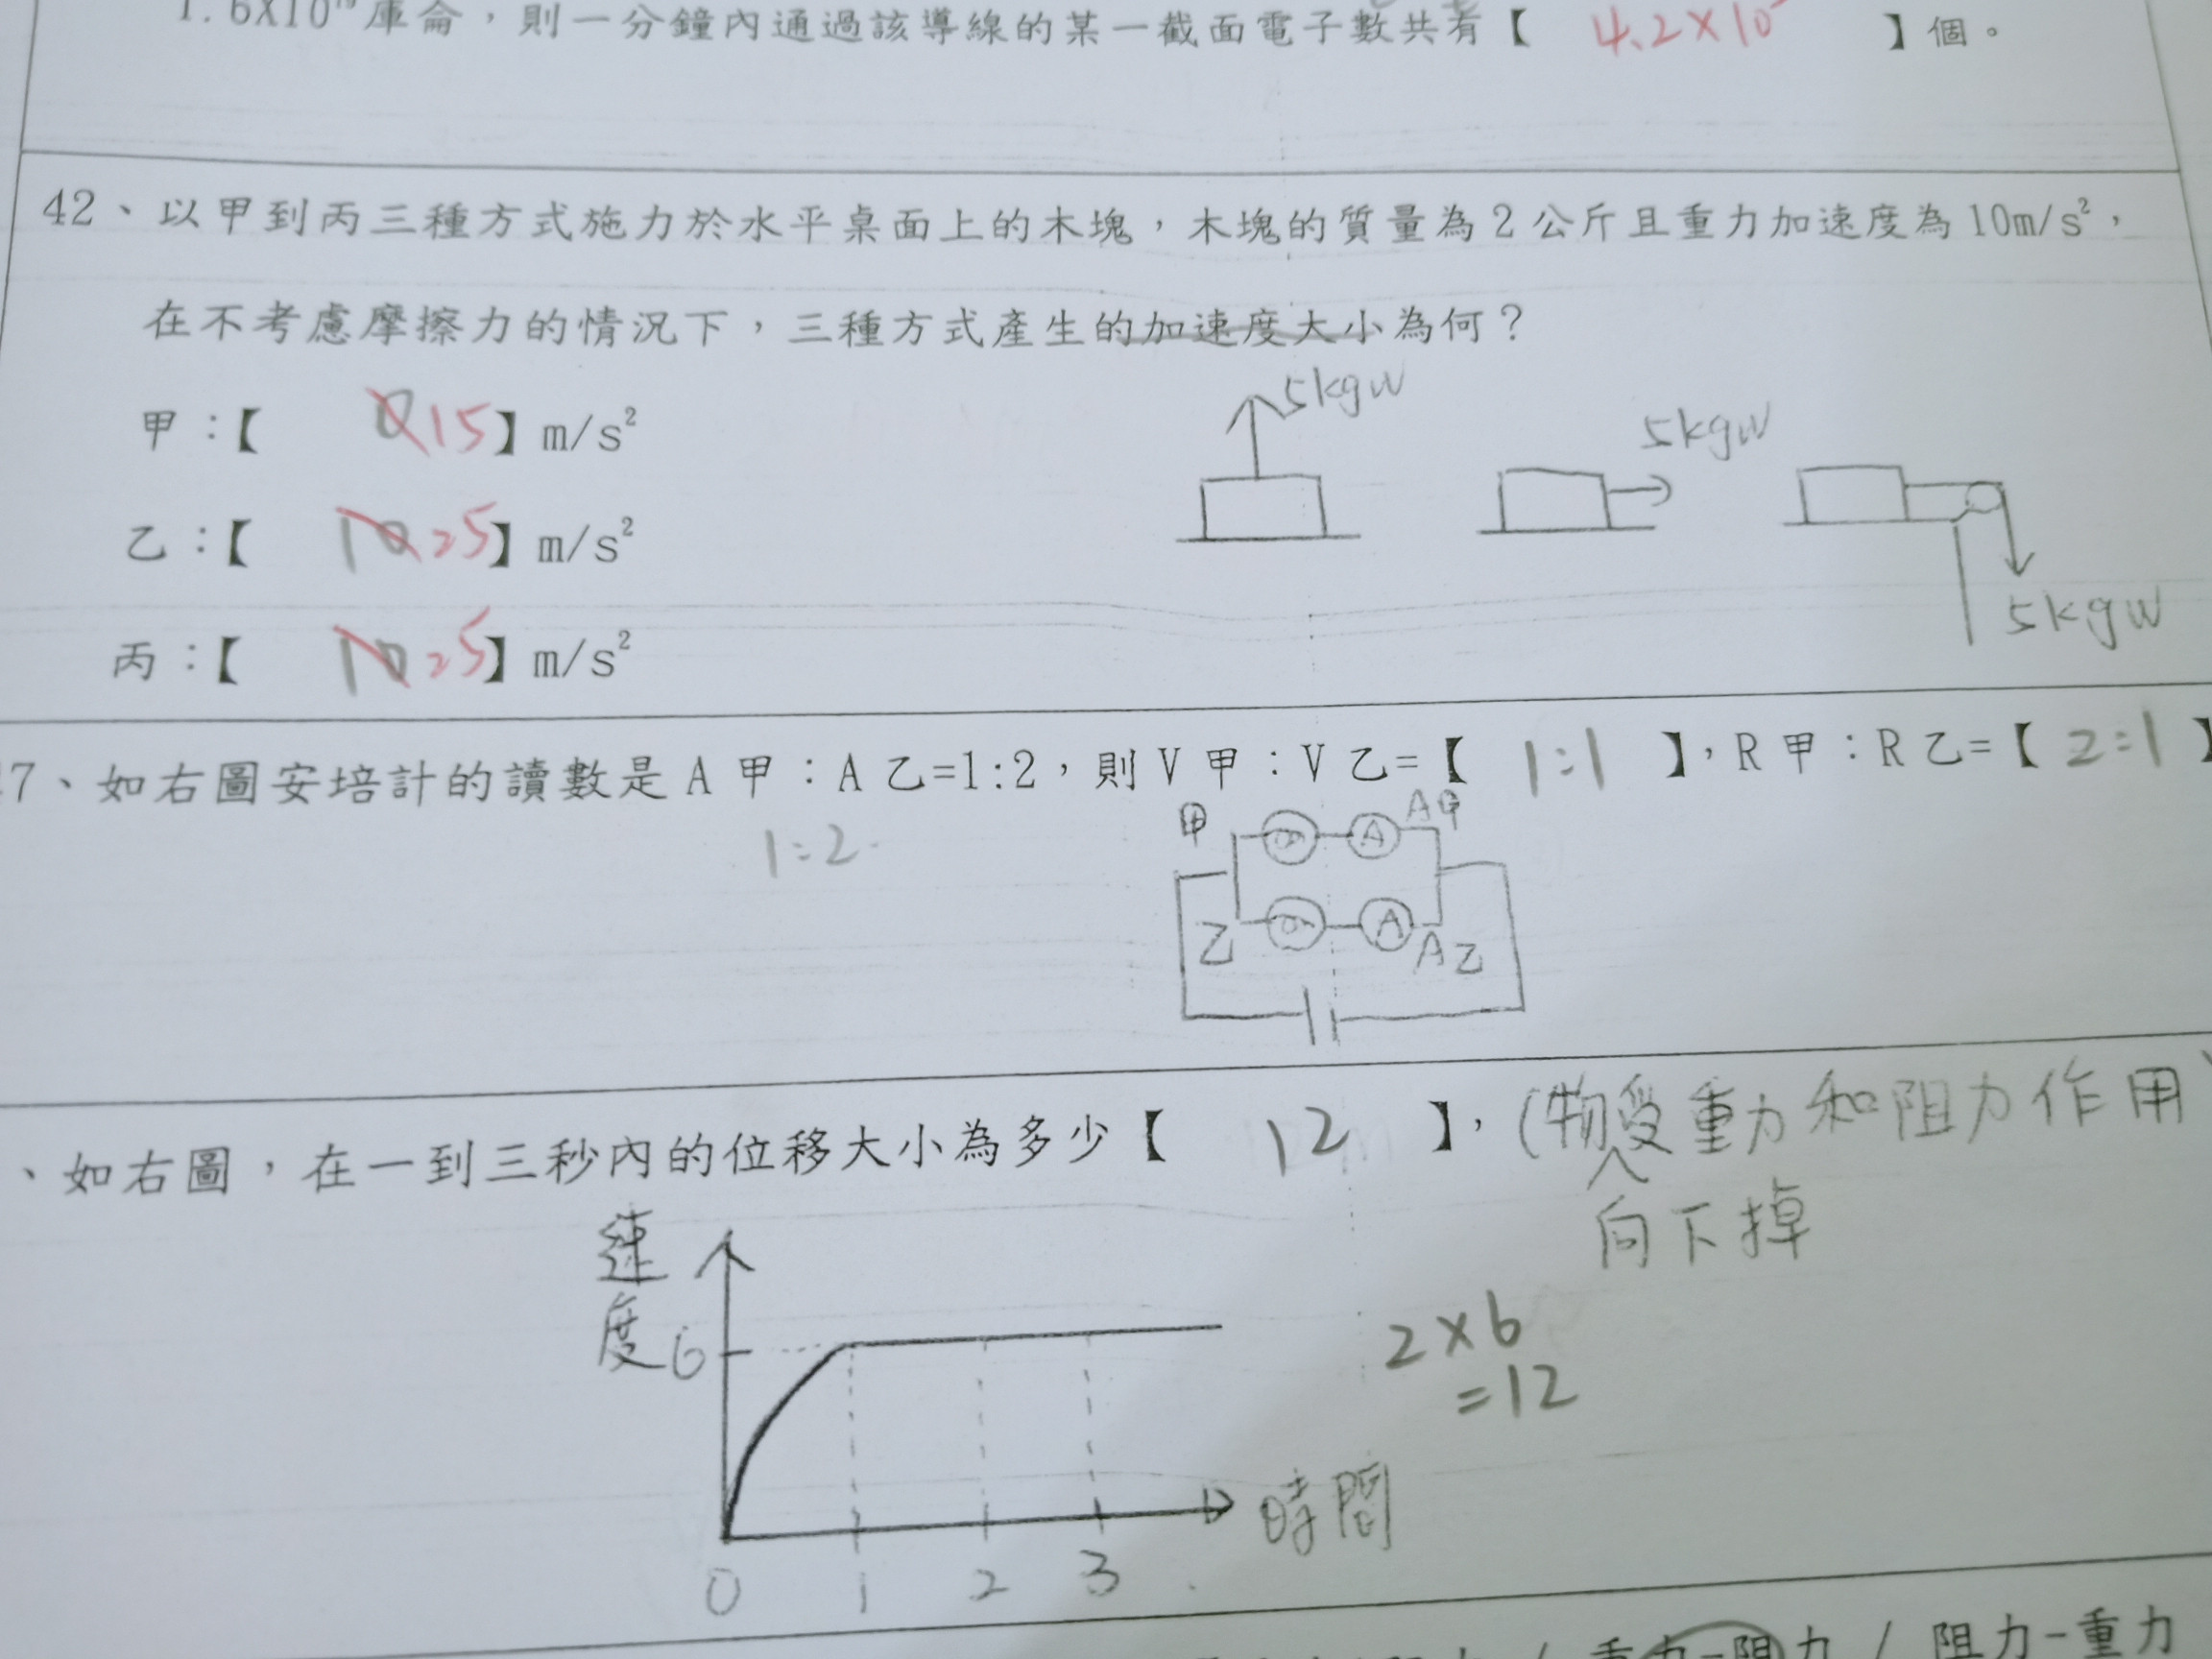 1.6X10 庫侖，則一分鐘內通過該導線的某一截面電子數共有【 4.2×10 】個。
42、以甲到丙三種方式施力於水平桌面上的木塊，木塊的質量為2公斤且重力加速度為10m/s²，
在不考慮摩擦力的情況下，三種方式產生的加速度大小為何？
5kgw
5kgw
甲：【 0 15】m/s²
乙：【 10 25】m/s²
5kgw
丙：【 10 25】m/s²
7、如右圖安培計的讀數是A甲：A乙=1:2，則V甲：V乙=【 1:1 】，R甲：R乙=【 2:1 】
1:2
甲 A A甲
乙 A A乙
、如右圖，在一到三秒內的位移大小為多少【 12 】，(物受重力和阻力作用
向下掉
速度
6
2×6
=12
時間
0 1 2 3
重力-阻力 / 阻力-重力